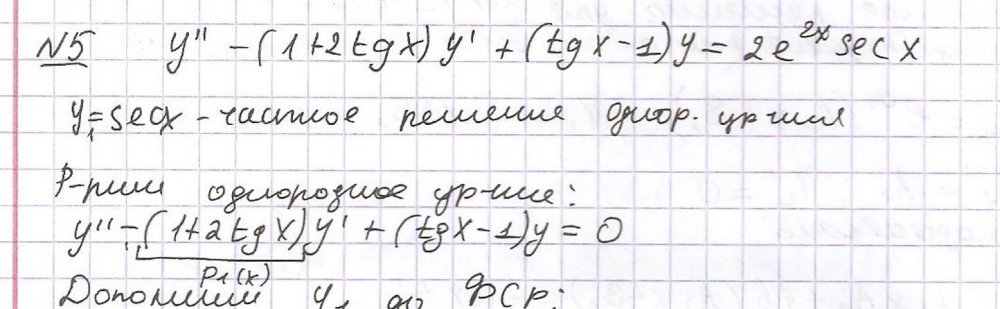 №5 y'' - (1+2tgx)y' + (tgx-1)y = 2e^{2x} secx
y₁=secx - частное решение однор. ур-ния
Р-рим однородное ур-ние:
y'' - (1+2tgx)y' + (tgx-1)y = 0
p₁(x)
Дополним y₁ до ФСР: